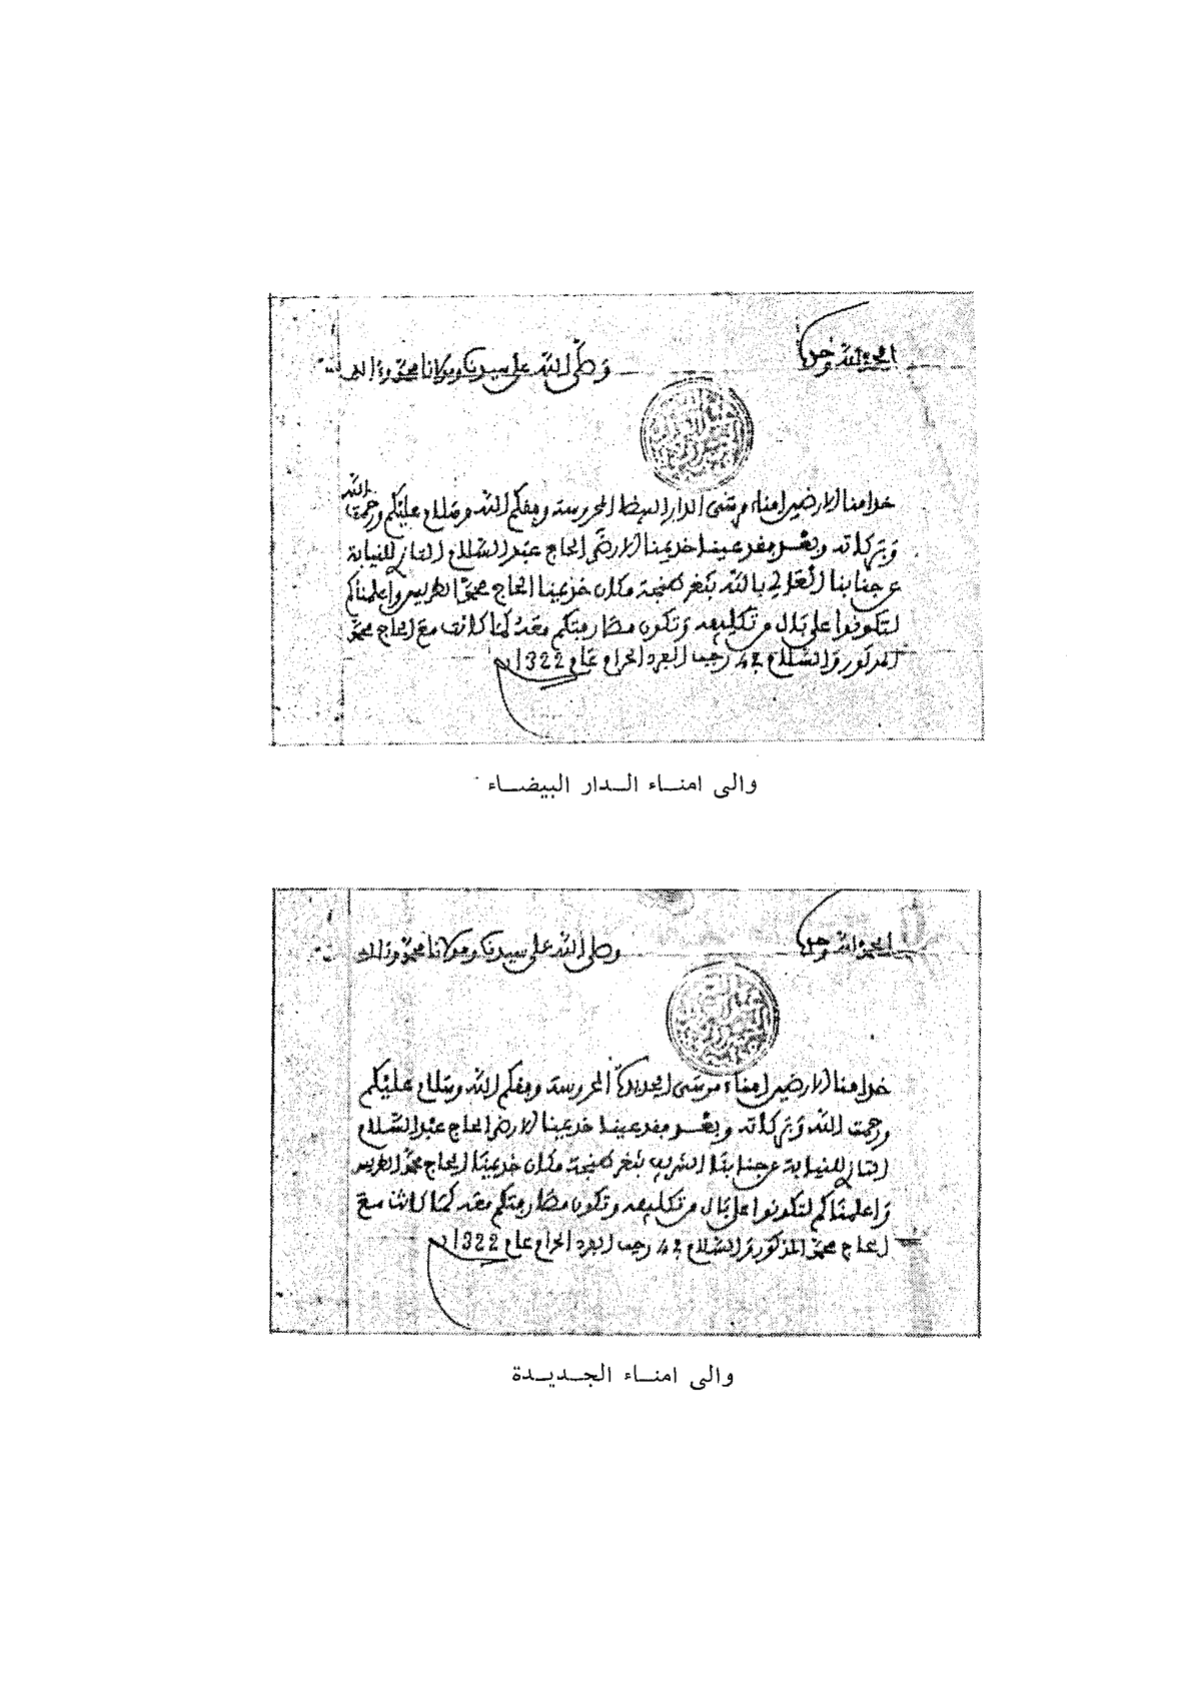 الحمد لله وحده
وصلى الله على سيدنا ومولانا محمد وآله
خدامنا الأرضين امناء مرسى الدار البيضا المحروسة وفقكم الله وسلام عليكم ورحمت الله
وبركاته وبعد فقد عينا خديمنا الأرضى الحاج عبد السلام التازي للنيابة
عن جنابنا العالي بالله بثغر طنجة مكان خديمنا الحاج محمد الطريس واعلمناكم
لتكونوا على بال من تكليفه وتكون مفاوضتكم معه كما كانت مع الحاج محمد
المذكور والسلام في 4 رجب الفرد الحرام عام 1322
والى امنـــاء الـــدار البيضـــاء
الحمد لله وحده
وصلى الله على سيدنا ومولانا محمد وآله
خدامنا الأرضين امناء مرسى الجديدة المحروسة وفقكم الله وسلام عليكم
ورحمت الله وبركاته وبعد فقد عينا خديمنا الأرضى الحاج عبد السلام
التازي للنيابة عن جنابنا الشريف بثغر طنجة مكان خديمنا الحاج محمد الطريس
واعلمناكم لتكونوا على بال من تكليفه وتكون مفاوضتكم معه كما كانت مع
الحاج محمد المذكور والسلام في 4 رجب الفرد الحرام عام 1322
والى امنـــاء الجـــديـــدة